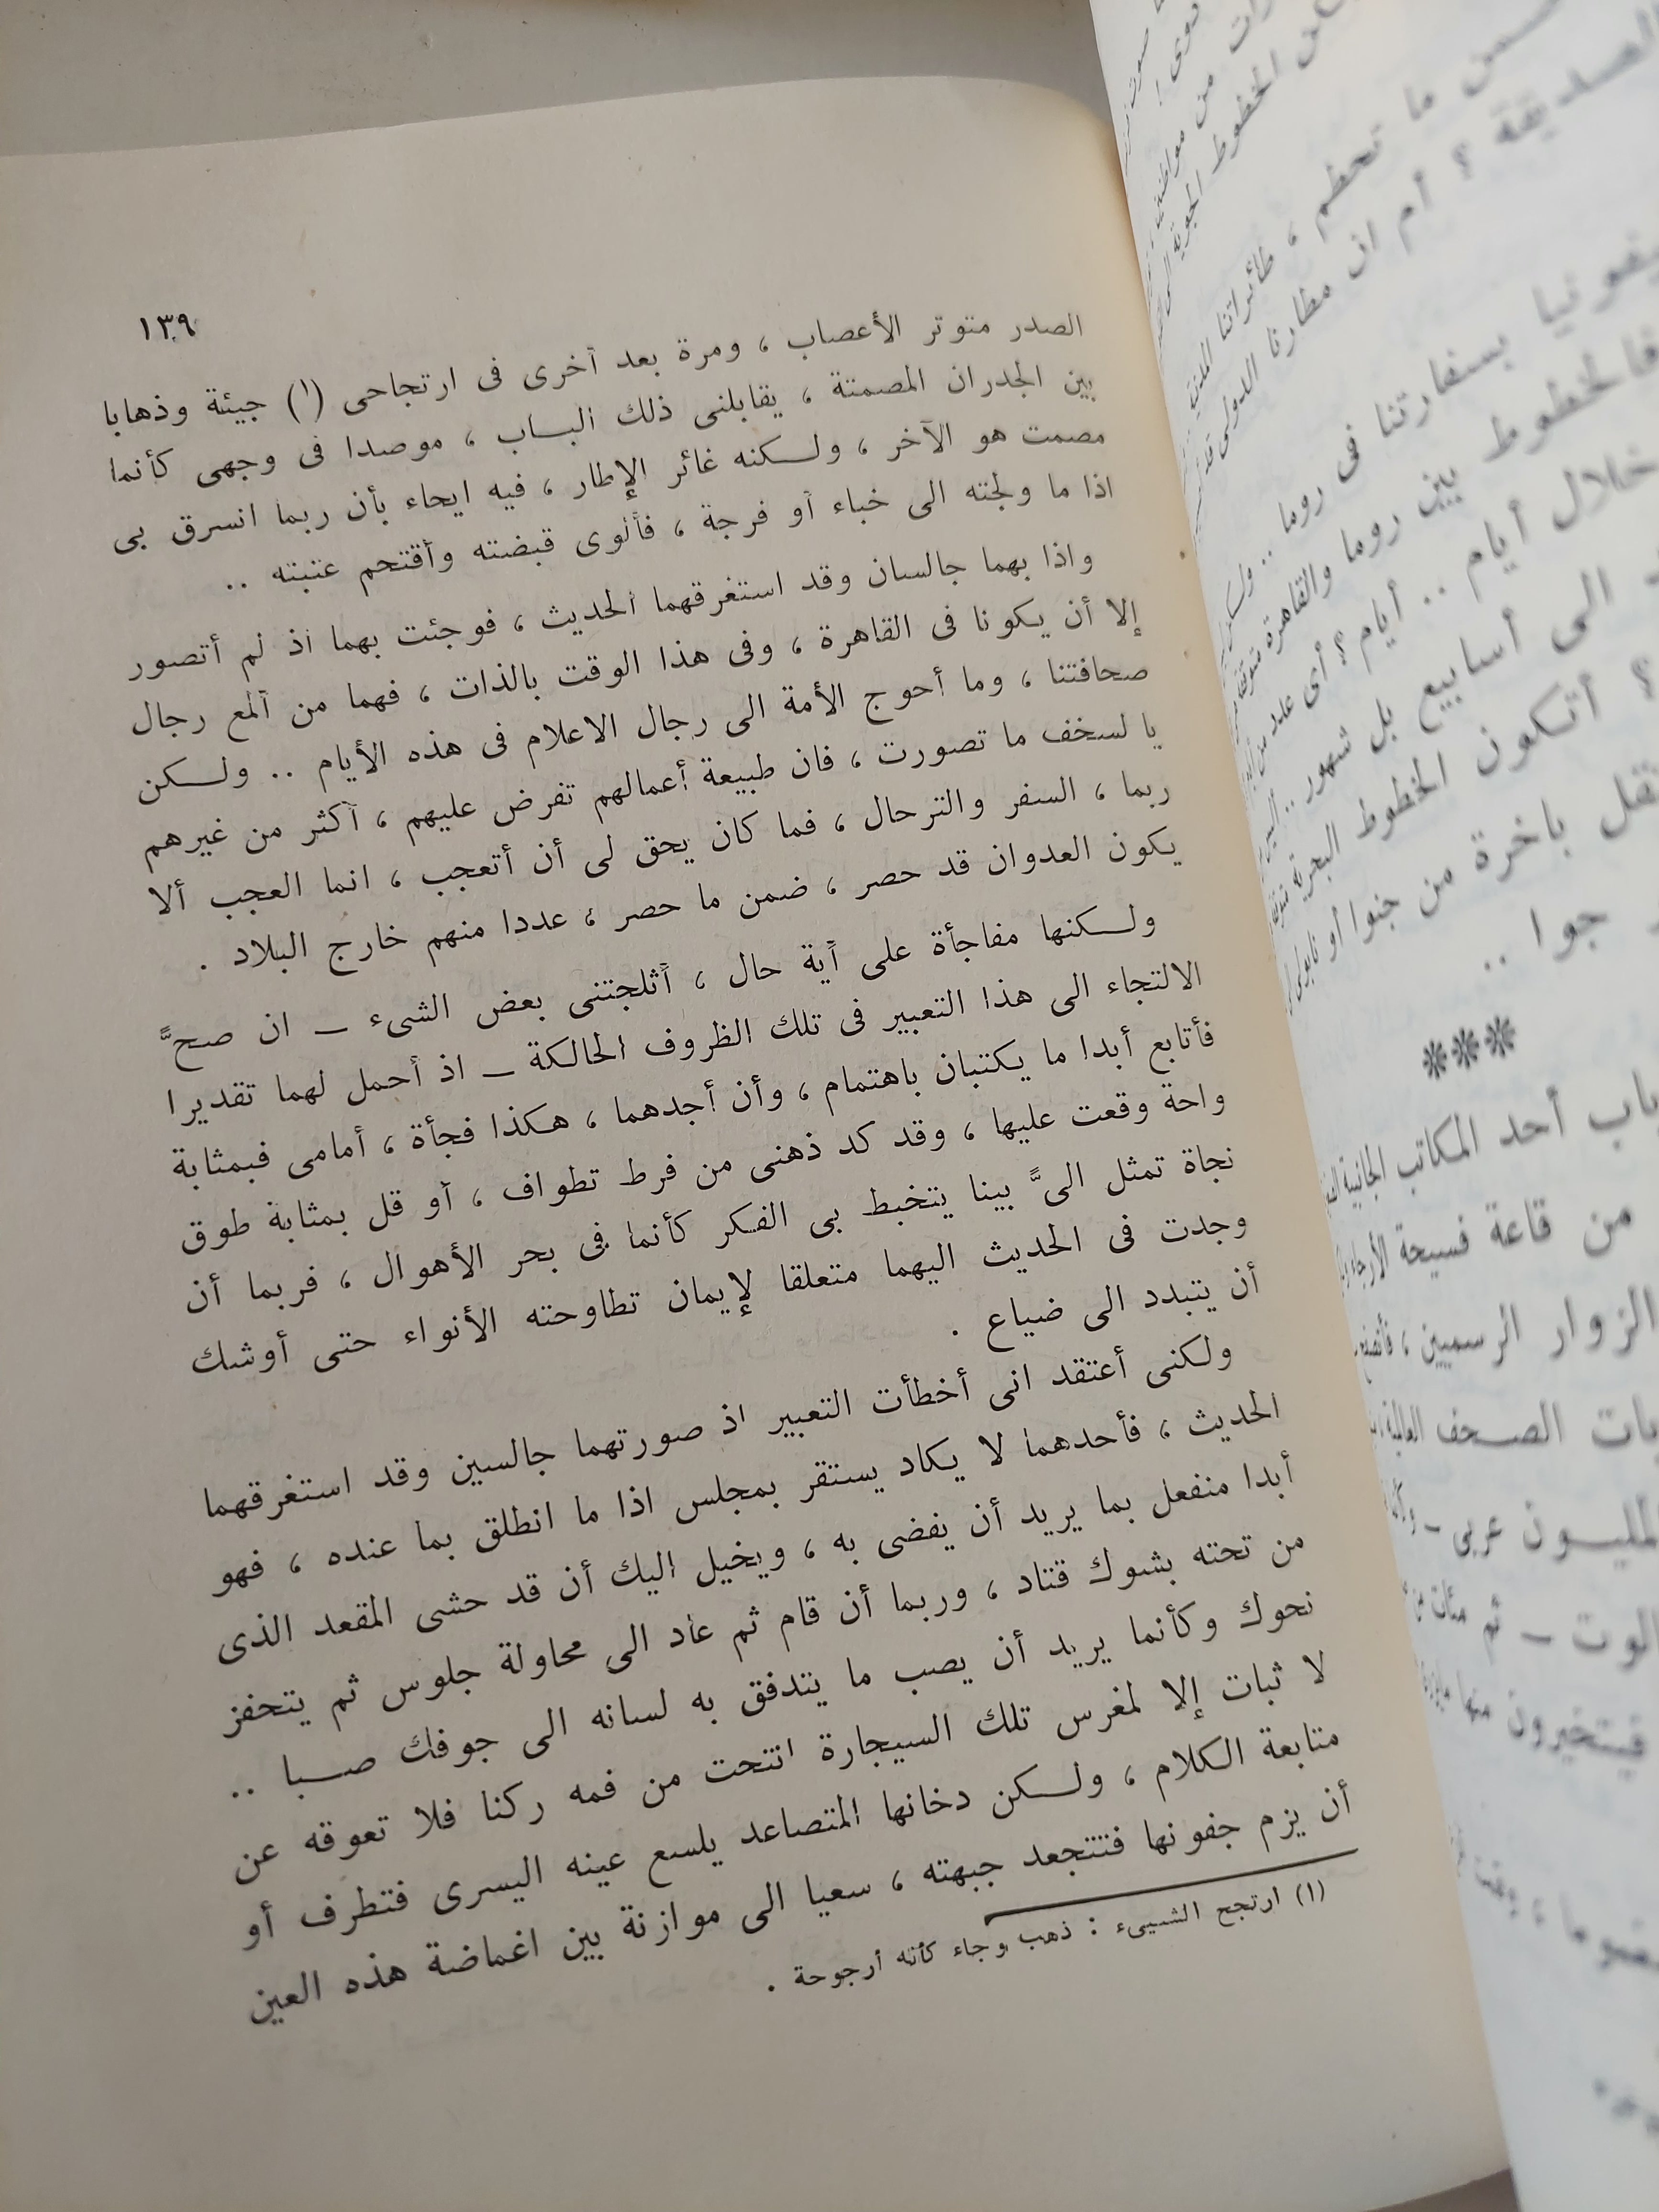 ١٣٩
الصدر متوتر الأعصاب ، ومرة بعد أخرى فى ارتجاحى (١) جيئة وذهابا
بين الجدران المصمتة ، يقابلنى ذلك البـاب ، موصدا فى وجهى كأنما
مصمت هو الآخر ، ولـكنه غائر الإطار ، فيه ايحاء بأن ربما انسرق بى
اذا ما ولجته الى خباء أو فرجة ، فألوى قبضته وأقتحم عتبته ..
واذا بهما جالسان وقد استغرقهما الحديث ، فوجئت بهما اذ لم أتصور
إلا أن يكونا فى القاهرة ، وفى هذا الوقت بالذات ، فهما من ألمع رجال
صحافتنا ، وما أحوج الأمة الى رجال الاعلام فى هذه الأيام .. ولـكن
يا لسخف ما تصورت ، فان طبيعة أعمالهم تفرض عليهم ، أكثر من غيرهم
ربما ، السفر والترحال ، فما كان يحق لى أن أتعجب ، انما العجب ألا
يكون العدوان قد حصر ، ضمن ما حصر ، عددا منهم خارج البلاد .
ولـكنها مفاجأة على أية حال ، أثلجتنى بعض الشىء — ان صحَّ
الالتجاء الى هذا التعبير فى تلك الظروف الحالكة — اذ أحمل لهما تقديرا
فأتابع أبدا ما يكتبان باهتمام ، وأن أجدهما ، هكذا فجأة ، أمامى فبمثابة
واحة وقعت عليها ، وقد كد ذهنى من فرط تطواف ، أو قل بمثابة طوق
نجاة تمثل الىَّ بينا يتخبط بى الفكر كأنما فى بحر الأهوال ، فربما أن
وجدت فى الحديث اليهما متعلقا لإيمان تطاوحته الأنواء حتى أوشك
أن يتبدد الى ضياع .
ولكنى أعتقد انى أخطأت التعبير اذ صورتهما جالسين وقد استغرقهما
الحديث ، فأحدهما لا يكاد يستقر بمجلس اذا ما انطلق بما عنده ، فهو
أبدا منفعل بما يريد أن يفضى به ، ويخيل اليك أن قد حشى المقعد الذى
من تحته بشوك قتاد ، وربما أن قام ثم عاد الى محاولة جلوس ثم يتحفز
نحوك وكأنما يريد أن يصب ما يتدفق به لسانه الى جوفك صـبا ..
لا ثبات إلا لمغرس تلك السيجارة انتحت من فمه ركنا فلا تعوقه عن
متابعة الـكلام ، ولـكن دخانها المتصاعد يلسع عينه اليسرى فتطرف أو
أن يزم جفونها فتتجعد جبهته ، سعيا الى موازنة بين اغماضة هذه العين
(١) ارتجح الشيىء : ذهب وجاء كأنه أرجوحة .
من ما تحظم ، طائراتنا المدنية
الصديقة ؟ أم ان مطارنا الدولى
بسفارتنا فى روما .. ولكن
فالخطوط بين روما والقاهرة
خلال أيام .. أيام ؟ أى عدد من
الى أسابيع بل شهور ..
؟ أتكون الخطوط البحرية
باخرة من جنوا أو نابولى
جوا ..
***
باب أحد المكاتب الجانبية
من قاعة فسيحة الأرجاء
الزوار الرسميين ،
الصـحف
المليـون عربى —
— ثم مئات من
فيتخيرون منها